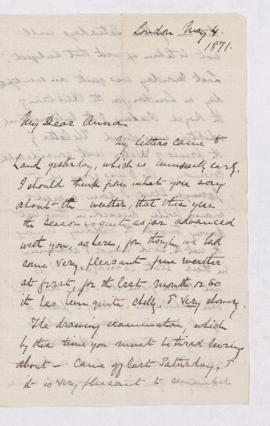 London May 4.
1871.
My Dear Anna
My letters came to
hand yesterday, which is unusually early.
I should think from what you say
about the weather, that this year
the season is quite as far advanced
with you, as here, for though we had
some very pleasant fine weather
at first, for the last month or so
it has been quite chilly, & very showery.
The drawing examination, which
by this time you must be tired hearing
about — came off last Saturday, &
it is very pleasant to remember